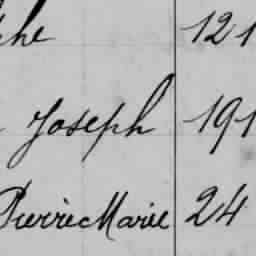 phe 121
Joseph 191
Pierre Marie 24